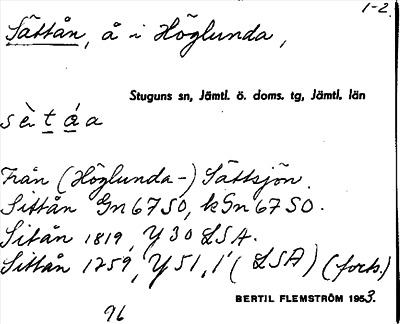 1-2.
Sättån, å i Höglunda,
Stuguns sn, Jämtl. ö. doms. tg, Jämtl. län
sè t á a
Från (Höglunda-) Sättsjön.
Sittån Gn 67 SO, kGn 67 SO.
Sitån 1819, Y 30 LSA.
Sittån 1759, Y 51, 1 (LSA) (forts.)
BERTIL FLEMSTRÖM 1953.
96